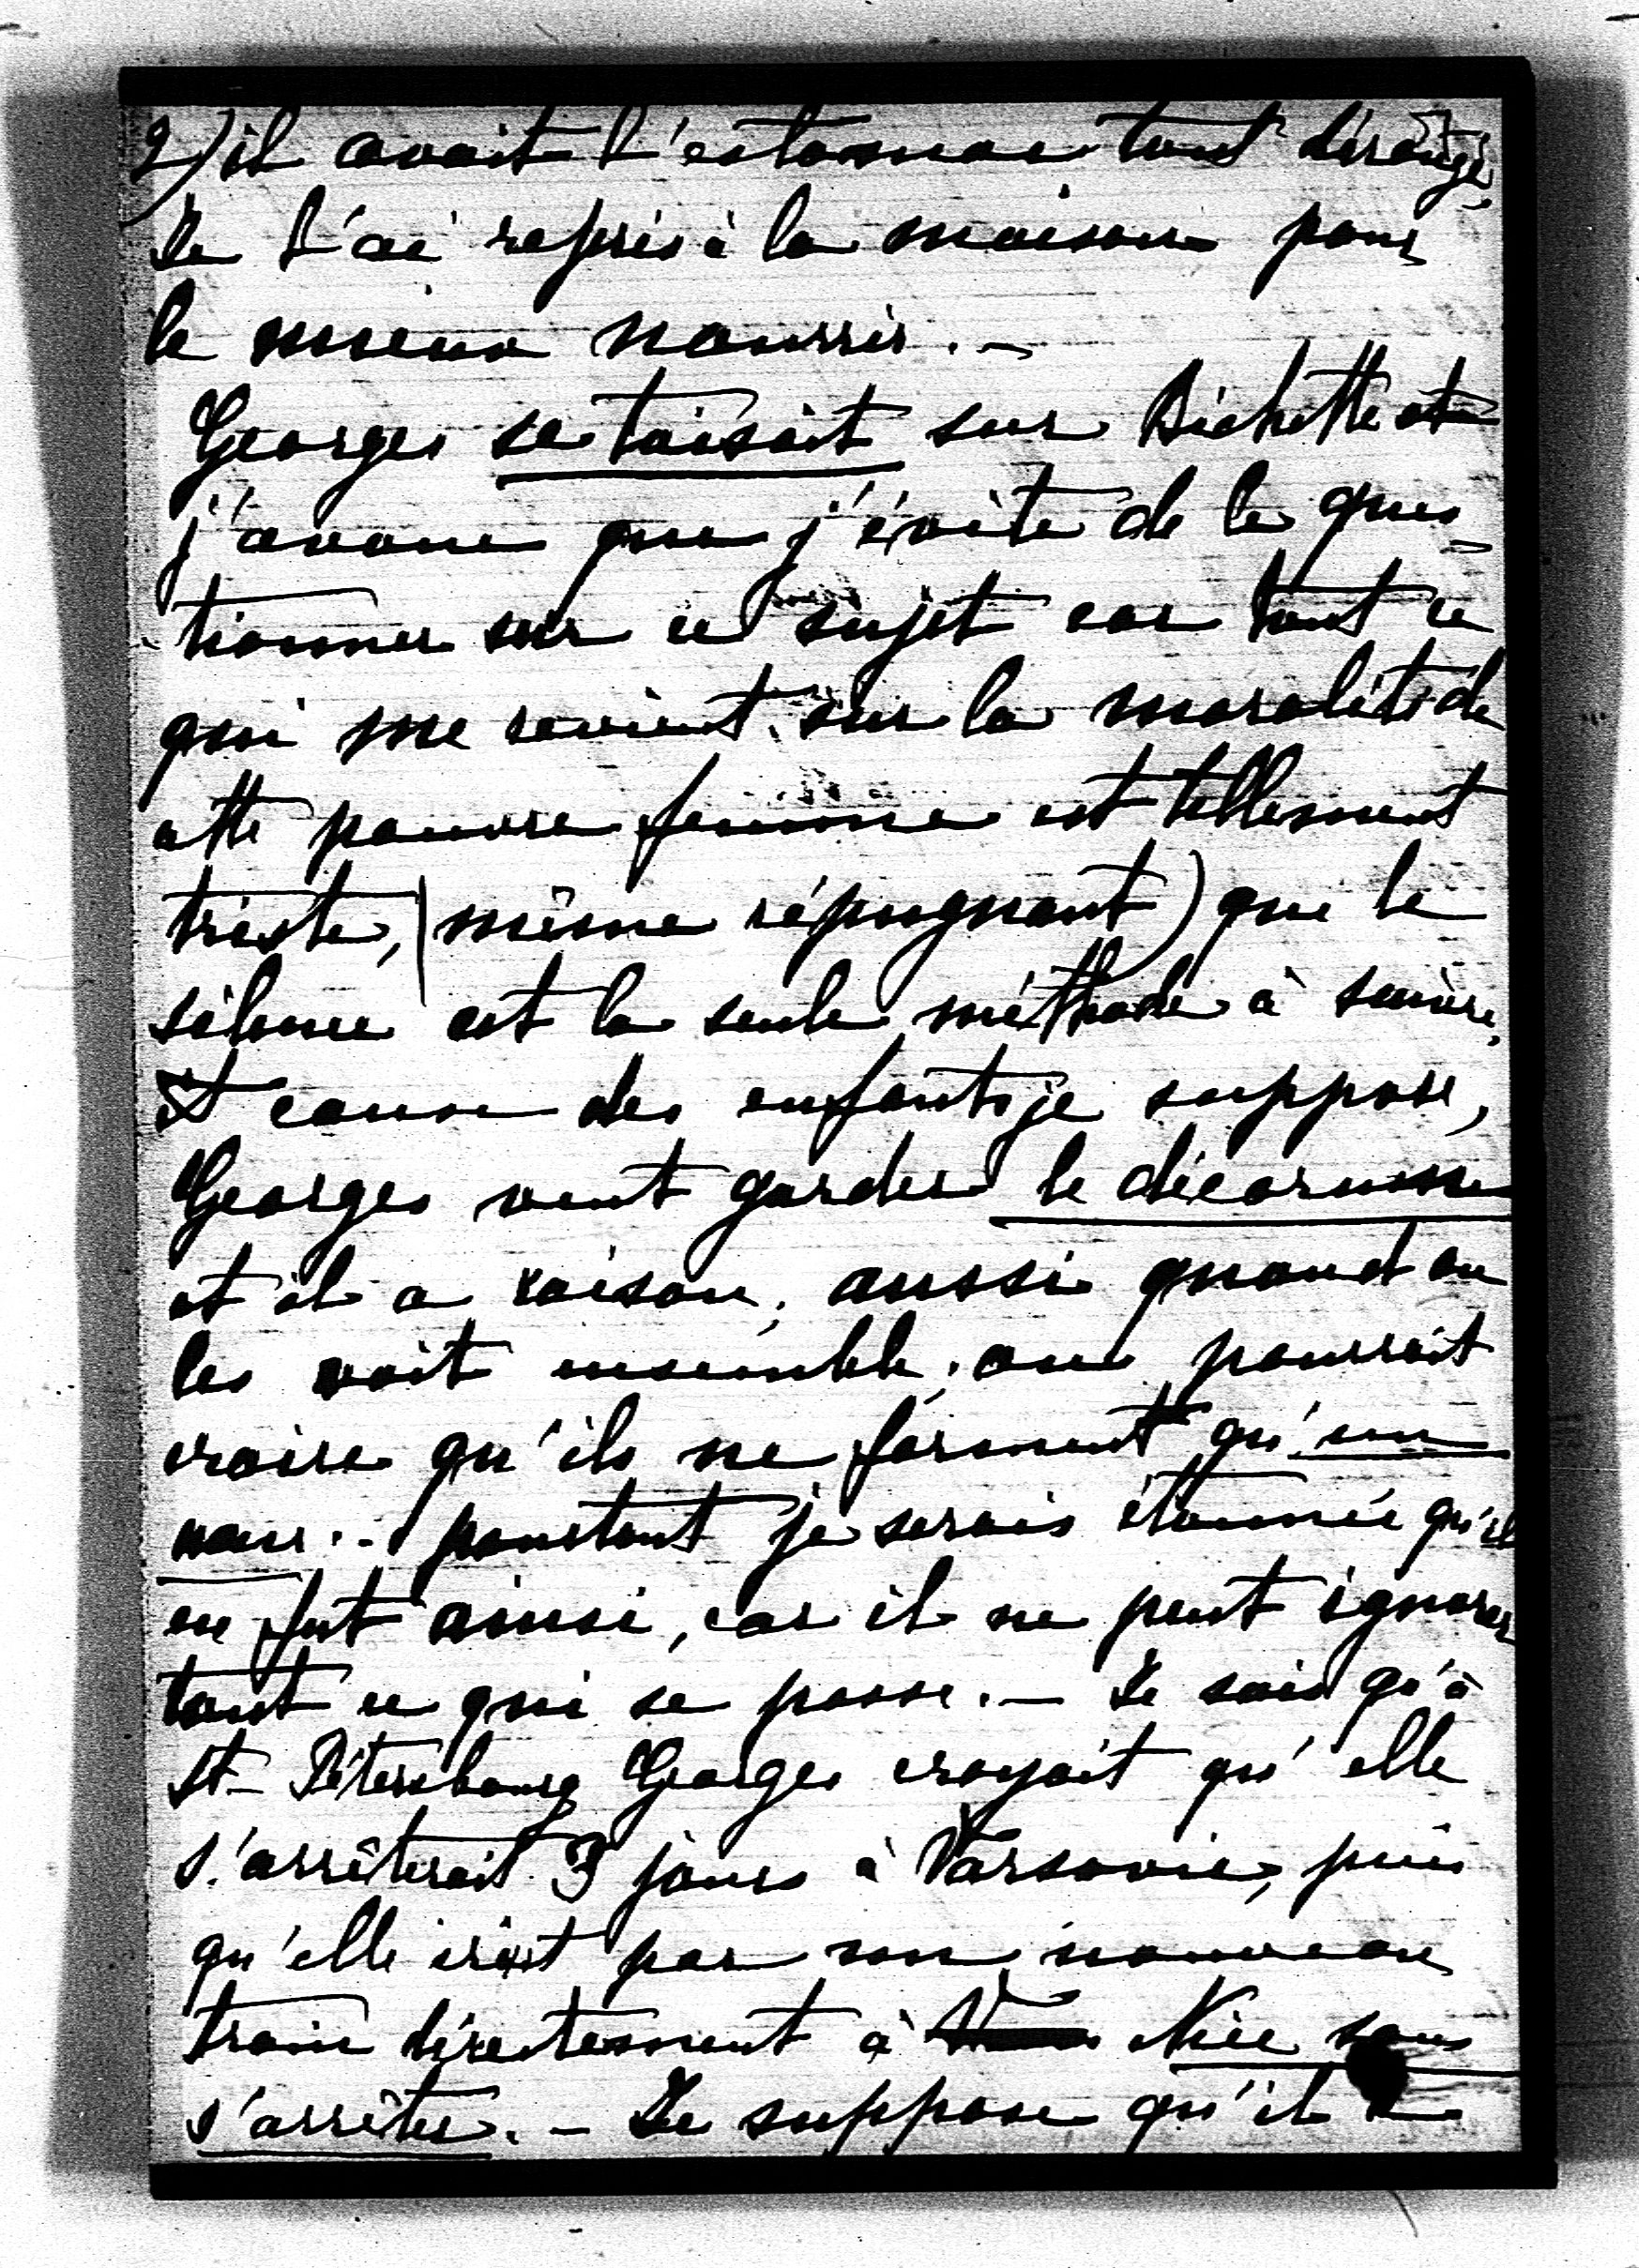 2) il avait l'estomac tout dérangé,
Je l'ai repris à la maison pour
le mieux nourrir. –
Georges se taisait sur Bichette et
j'avoue que j'évite de le ques-
tionner sur ce sujet car tout ce
qui me revient sur la moralité de
cette pauvre femme est tellement
triste, (même répugnant) que le
silence est la seule méthode à suivre.
et cause des enfants je suppose,
Georges veut garder le décorum
et il a raison, aussi quand on
les voit ensemble, on pourrait
croire qu'ils ne forment qu'un
... pourtant je serais étonnée qu'il
en fut ainsi, car il ne peut ignorer
tout ce qui se passe. – Je sais qu'à
St- Pétersbourg Georges croyait qu'elle
s'arrêterait 3 jours à Varsovie, puis
qu'elle irait par son nouveau
train directement à Nice sans
s'arrêter. – Je suppose qu'il a